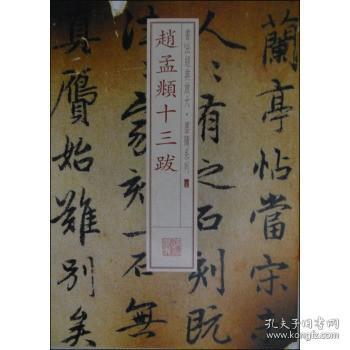 蘭亭帖當宋
人〻有之石刻既
往〻家刻一石無
真贗始難別矣
書法經典放大·墨蹟系列
趙孟頫十三跋
孔夫子旧书网